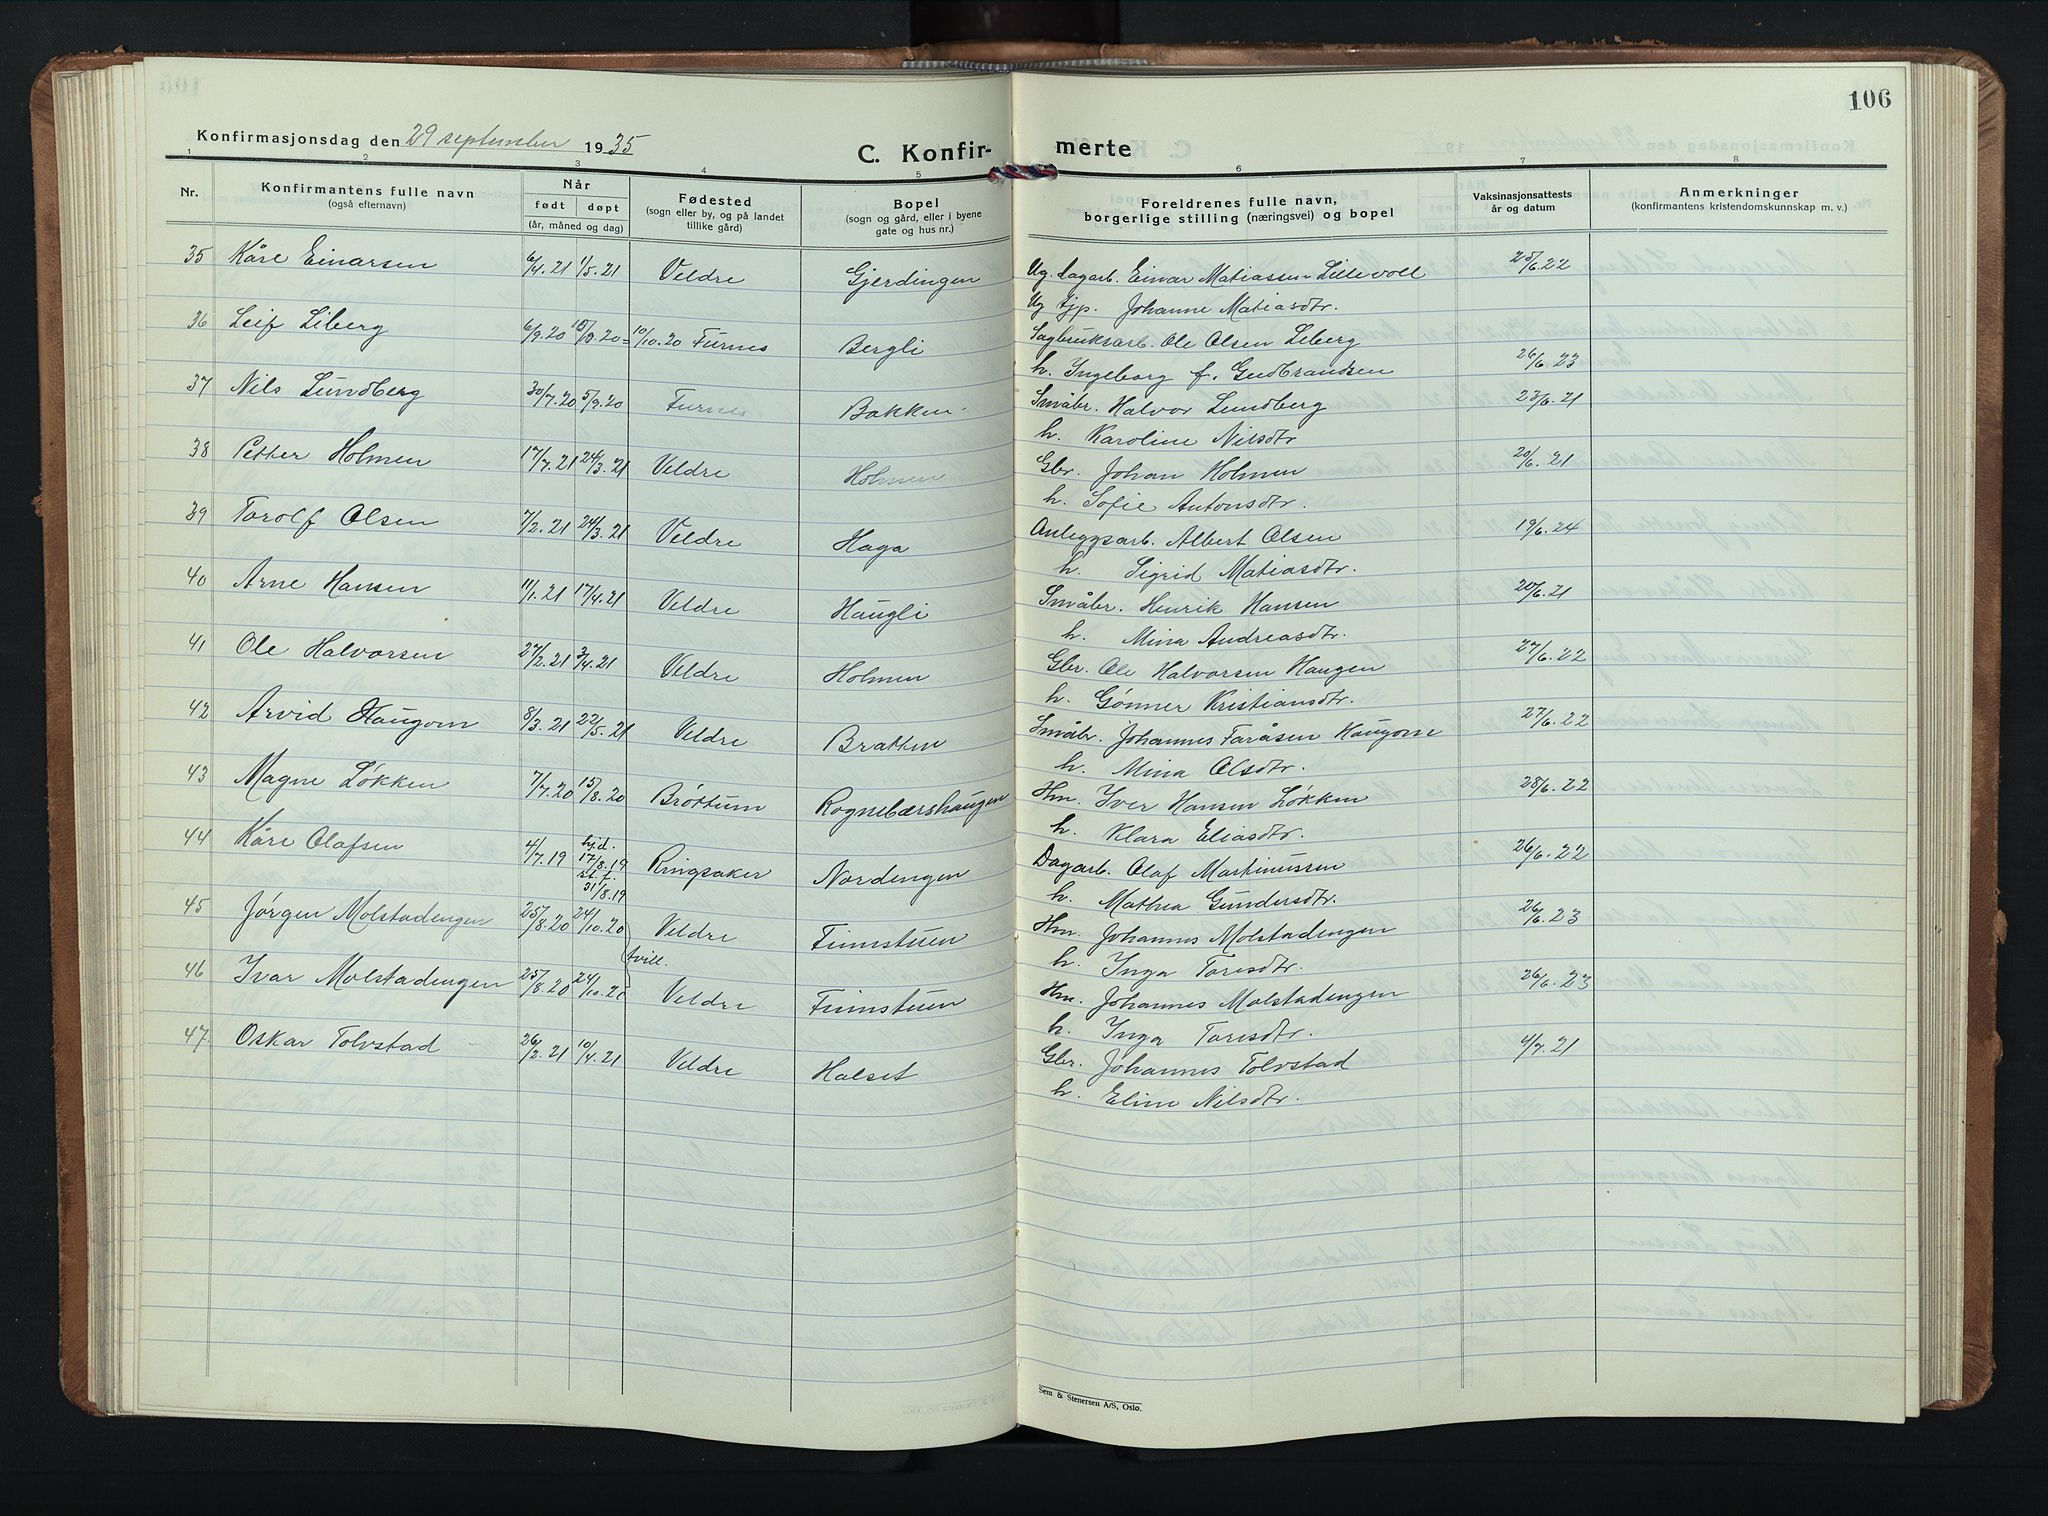 106
Konfirmasjonsdag den 29 september 1935
C. Konfir- merte
1 2 3 4 5 6 7 8
Nr. Konfirmantens fulle navn (også efternavn) Når født døpt (år, måned og dag) Fødested (sogn eller by, og på landet tillike gård) Bopel (sogn og gård, eller i byene gate og hus nr.) Foreldrenes fulle navn, borgerlige stilling (næringsvei) og bopel Vaksinasjonsattests år og datum Anmerkninger (konfirmantens kristendomskunnskap m. v.)
35 Kåre Einarsen 6/4.21 1/5.21 Veldre Gjerdingen Ug. dagarb. Einar Matiassen Lillevoll 25/6.22
Ug tjp. Johanne Matiasdtr.
36 Leif Liberg 6/9.20 /9.20 = 10/10.20 Furnes Bergli Sagbruksarb. Ole Olsen Liberg
h. Ingeborg f. Gudbrandsen 26/6.23
37 Nils Lundberg 30/7.20 5/9.20 Furnes Bakken Småbr. Halvor Lundberg 23/6.21
h. Karoline Nilsdtr
38 Petter Holmen 17/7.21 24/3.21 Veldre Holmen Gbr. Johan Holmen 20/6.21
h. Sofie Antonsdtr.
39 Torolf Olsen 7/2.21 24/3.21 Veldre Haga Anleggsarb. Albert Olsen 19/6.24
h. Sigrid Matiasdtr.
40 Arne Hansen 11/1.21 17/4.21 Veldre Haugli Småbr. Henrik Hansen 20/6.21
h. Mina Andreasdtr.
41 Ole Halvorsen 27/2.21 3/4.21 Veldre Holmen Gbr. Ole Halvorsen Haugen 27/6.22
h. Gønner Kristiansdtr.
42 Arvid Haugom 8/3.21 22/5.21 Veldre Bratten Småbr. Johannes Toråsen Haugom 27/6.22
h. Mina Olsdtr.
43 Magne Løkken 7/7.20 15/8.20 Brøttum Rognebærshaugen Hm. Iver Hansen Løkken 28/6.22
h. Klara Eliasdtr.
44 Kåre Olafsen 4/7.19 hj.d. 17/8.19 st.f. 31/8.19 Ringsaker Nordengen Dagarb. Olaf Martinussen 26/6.22
h. Mathea Gundersdtr.
45 Jørgen Molstadengen 25/8.20 24/10.20 Veldre Finnstuen Hm. Johannes Molstadengen 26/6.23
tvill.
h. Inga Toresdtr.
46 Ivar Molstadengen 25/8.20 24/10.20 Veldre Finnstuen Hm. Johannes Molstadengen 26/6.23
h. Inga Toresdtr.
47 Oskar Tolvstad 26/2.21 10/4.21 Veldre Halset Gbr. Johannes Tolvstad 4/7.21
h. Eline Nilsdtr.
Sem & Stenersen A/S, Oslo.